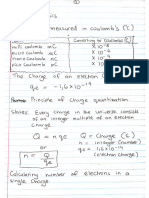 measured in coulomb's (C)
Converting to Coulombs (C)
milli coulomb mC × 10⁻³
micro coulomb μC × 10⁻⁶
nano coulomb nC × 10⁻⁹
pico coulomb pC × 10⁻¹²
The charge of an electron
qe = -1,6 × 10⁻¹⁹
Principle of charge quantization
States: Every charge in the universe consists
of an integer multiple of an electron
charge
Q = nqe
or
n = Q/qe
Q = charge (C)
n = integer (number)
(number of electrons)
qe = 1,6 × 10⁻¹⁹
(electron charge)
Calculating number of electrons in a
single charge